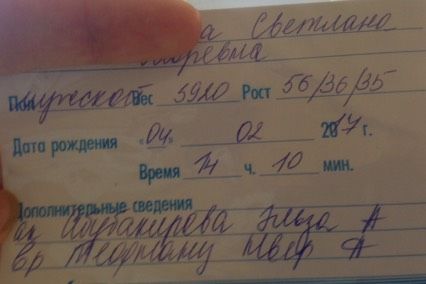 а Светлана
Игоревна
Пол мужской Вес 3920 Рост 56/36/35
Дата рождения «04» 02 2017 г.
Время 14 ч. 10 мин.
Дополнительные сведения
ак Абубакирова Эльза А
вр